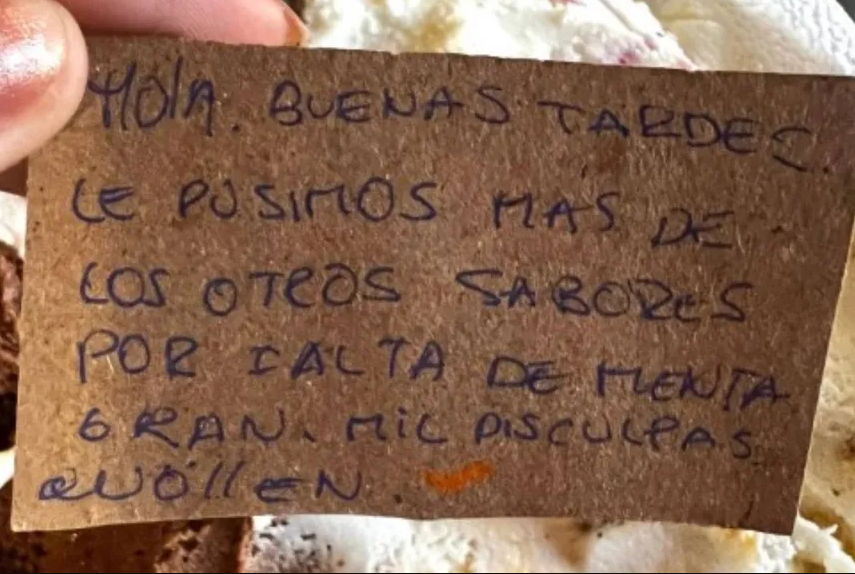 HOlA. BUENAS TARDES.
LE PUSIMOS MAS DE
LOS OTROS SABORES
POR FALTA DE MENTA
GRAN. MIL DISCULPAS.